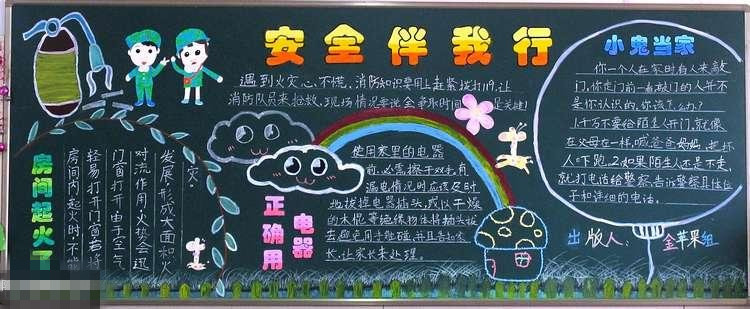 安全伴我行
遇到火灾心不慌,消防知识要用上赶紧拨打119,让
消防队员来抢救,现场情况要说全争取时间是关键!
房间起火了
房间内起火时,不能
轻易打开门窗,以免
对流作用,火势会迅
门窗打开,由于空气
发展,形成大面积火
灾。
正确用电器
使用家里的电器
前,必需擦干双手,有
漏电情况时应该及时
地拔掉电器插头,或以干燥
的木棍等绝缘物体将插头拔
去,避免用手触碰,并且告知家
长,让家长来处理。
小鬼当家
你一个人在家时有人来敲
门,你走门前一看敲门的人并不
是你认识的,你该怎么办?
1千万不要给陌生人开门,就像
在父母在一样,喊爸爸妈妈,把坏
人吓跑。2如果陌生人还是不走,
就打电话给警察,告诉警察具体位
子和详细的电话。
出版人:金苹果组